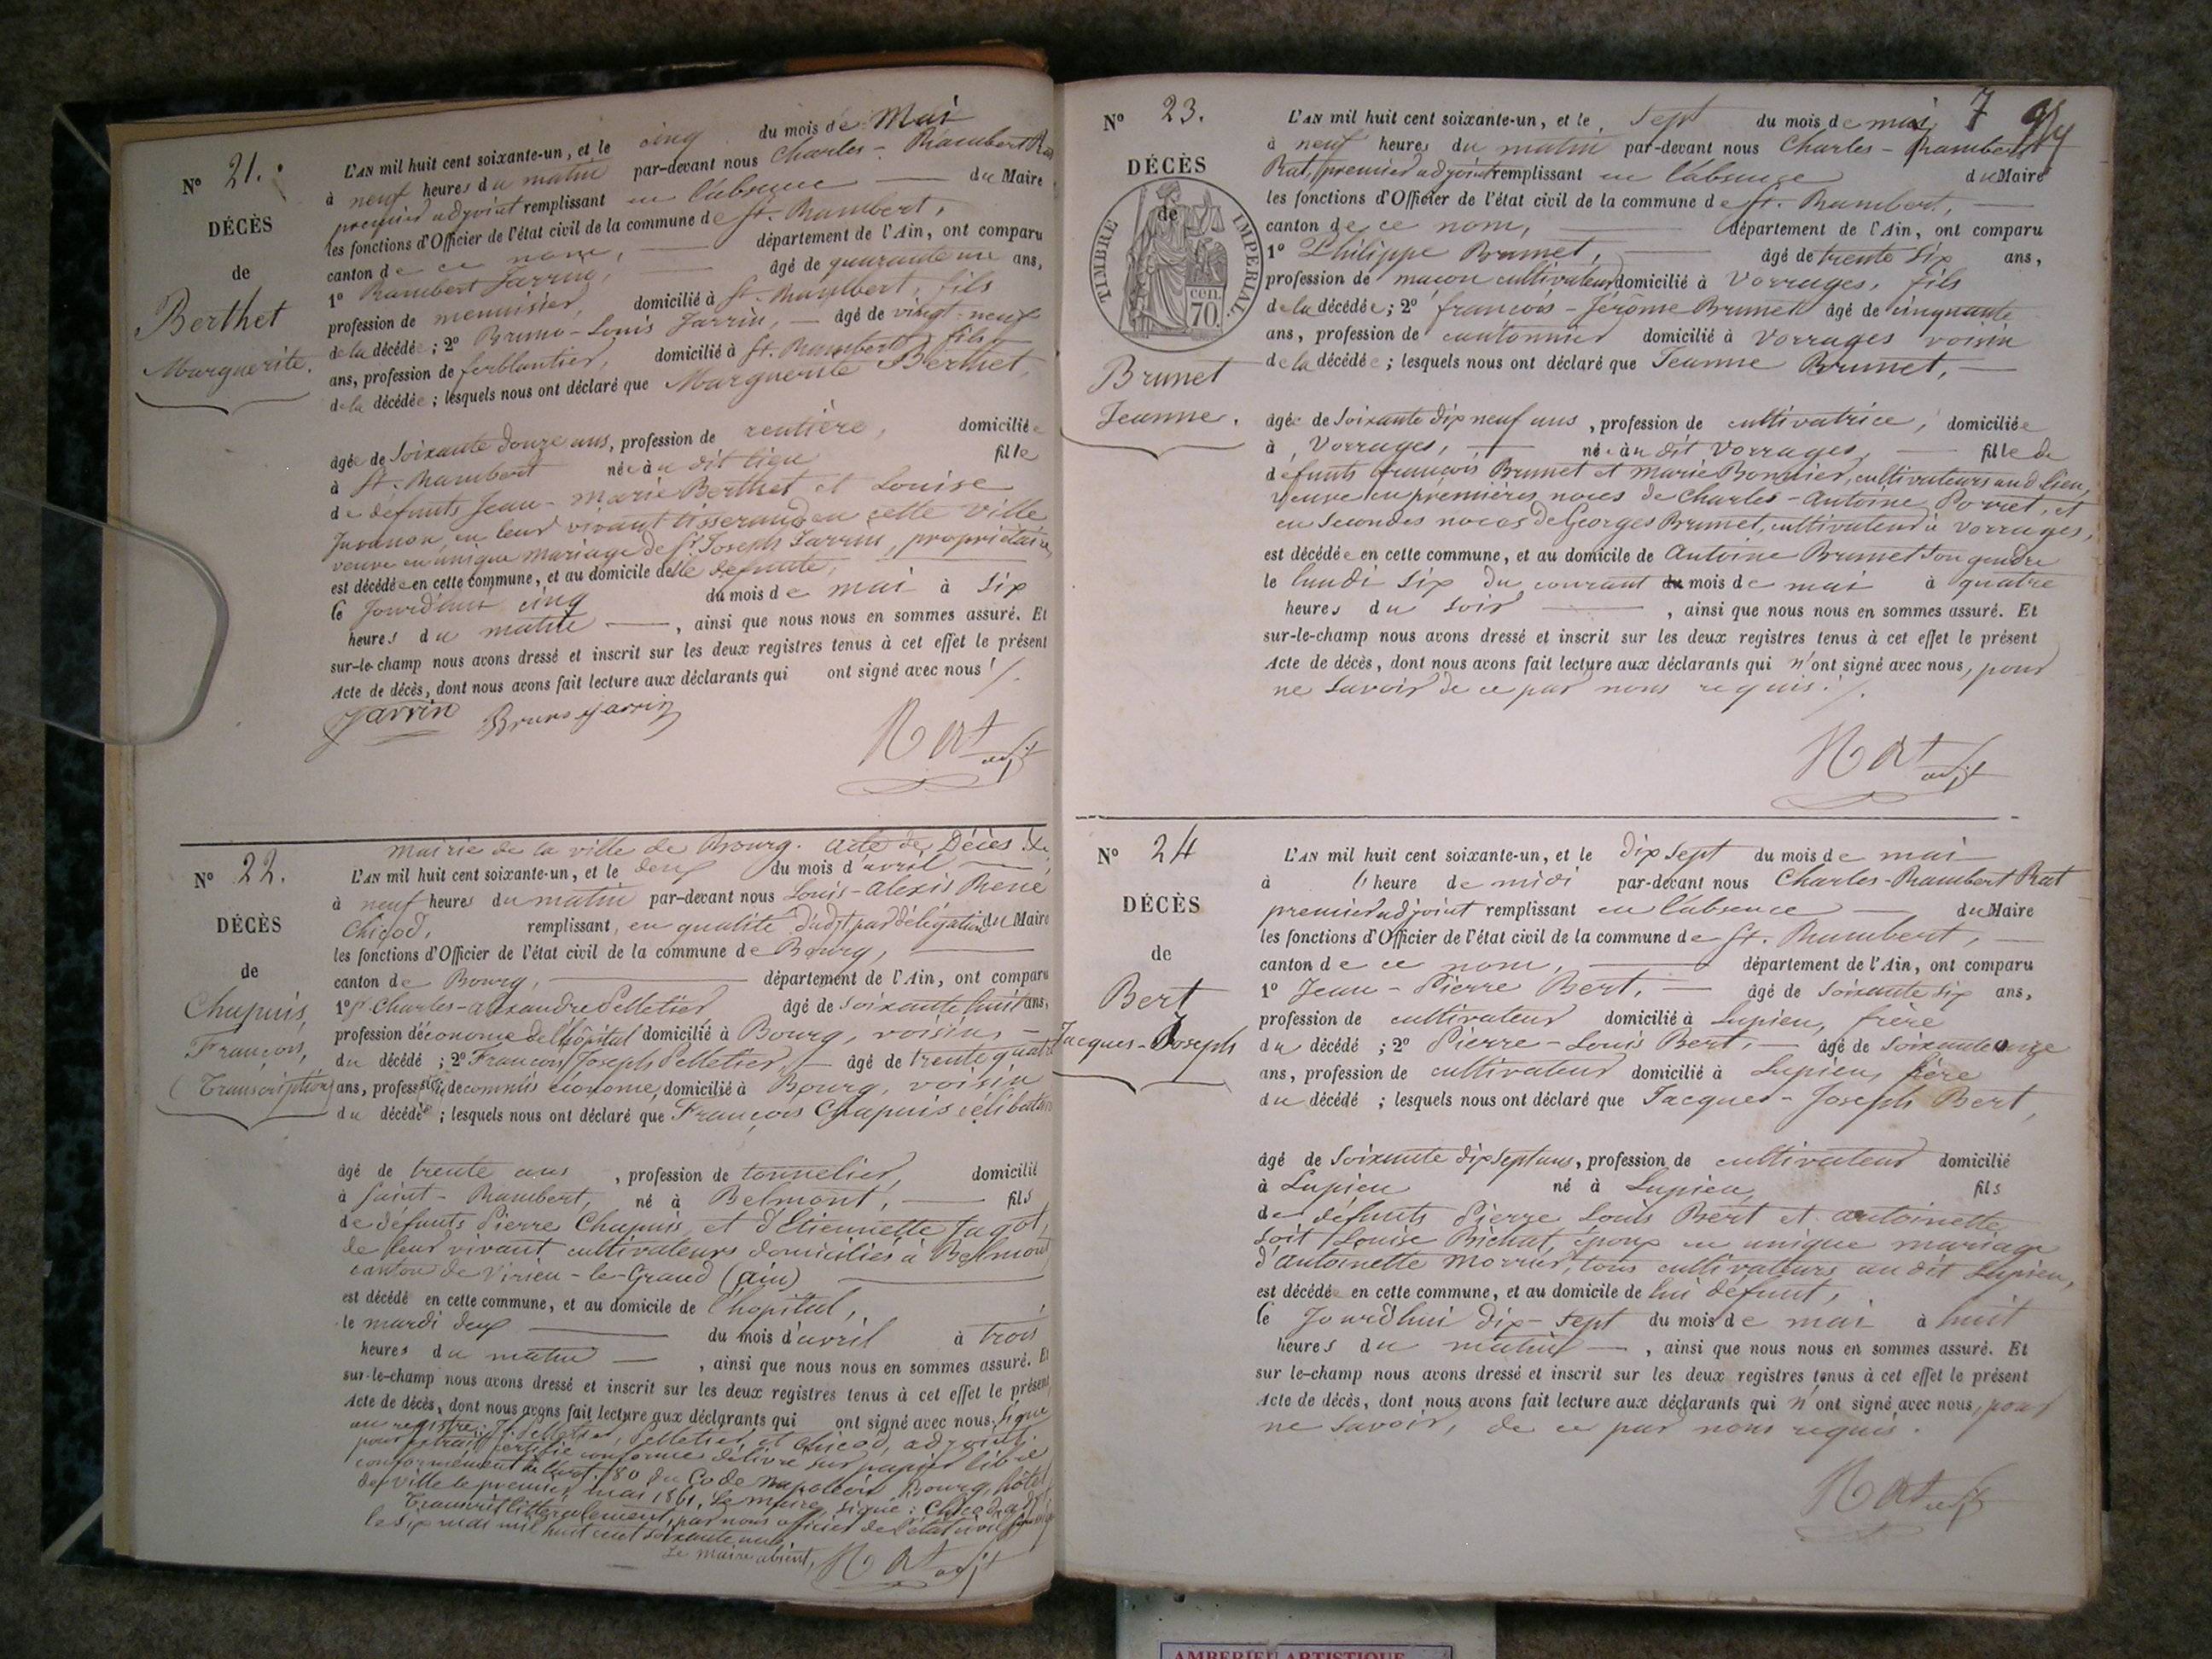 N° 21.
DÉCÈS
de
Berthet
Marguerite.
L'AN mil huit cent soixante-un, et le cinq du mois de Mai
à neuf heures du matin par-devant nous Charles-Rambert Rat
premier adjoint remplissant en l'absence du Maire
les fonctions d'Officier de l'état civil de la commune de St. Rambert,
canton de ce nom, département de l'Ain, ont comparu
1° Rambert Jarrin, âgé de quarante un ans,
profession de menuisier, domicilié à St. Rambert, fils
de la décédée ; 2° Bruno-Louis Jarrin, âgé de vingt-neuf
ans, profession de ferblantier, domicilié à St. Rambert, fils
de la décédée ; lesquels nous ont déclaré que Marguerite Berthet,
âgée de Soixante douze ans, profession de rentière, domiciliée
à St. Rambert née au dit lieu fille
de défunts Jean-Marie Berthet et Louise
en leur vivant tisserands en cette ville
veuve en unique mariage de Sr Joseph Jarrin, propriétaire,
est décédée en cette commune, et au domicile d'elle défunte,
le Jourd'hui cinq du mois de mai à six
heures du matin, ainsi que nous nous en sommes assuré. Et
sur-le-champ nous avons dressé et inscrit sur les deux registres tenus à cet effet le présent
Acte de décès, dont nous avons fait lecture aux déclarants qui ont signé avec nous ./.
Jarrin Bruno Jarrin
Rat adjt
N° 22.
DÉCÈS
de
Chapuis,
François,
(Transcription)
Mairie de la ville de Bourg. Acte de Décès de
L'AN mil huit cent soixante-un, et le deux du mois d'avril
à neuf heures du matin par-devant nous Louis-Alexis René
Chicod, remplissant, en qualité d'adjt, par délégation du Maire
les fonctions d'Officier de l'état civil de la commune de Bourg,
canton de Bourg, département de l'Ain, ont comparu
1° Sr Charles-Alexandre Pelletier âgé de soixante huit ans,
profession d'économe de l'hôpital domicilié à Bourg, voisin
du décédé ; 2° François Joseph Pelletier, âgé de trente quatre
ans, profession de commis économe, domicilié à Bourg, voisin
du décédé ; lesquels nous ont déclaré que François Chapuis célibataire
âgé de trente ans, profession de tonnelier, domicilié
à Saint-Rambert, né à Belmont, fils
de défunts Pierre Chapuis et d'Etiennette Jagot,
de leur vivant cultivateurs domiciliés à Belmont
canton de Virieu-le-Grand (Ain)
est décédé en cette commune, et au domicile de l'hopital,
le mardi deux du mois d'avril à trois
heures du matin, ainsi que nous nous en sommes assuré. Et
sur-le-champ nous avons dressé et inscrit sur les deux registres tenus à cet effet le présent
Acte de décès, dont nous avons fait lecture aux déclarants qui ont signé avec nous. Signé
au registre: Pelletier, Pelletier, et Chicod, adjoint.
pour extrait certifié conforme délivré sur papier libre
conformément à l'art. 80 du Code Napoléon Bourg, hôtel
de ville le premier mai 1861. Le maire, signé: Chicod adjt
Transcrit littéralement, par nous officier de l'état civil
le six mai mil huit cent soixante un.
Le maire absent, Rat adjt
N° 23.
7
DÉCÈS
de
TIMBRE IMPERIAL
CEN. 70.
Brunet
Jeanne.
L'AN mil huit cent soixante-un, et le sept du mois de mai
à neuf heures du matin par-devant nous Charles-Rambert
Rat, premier adjoint remplissant en l'absence du Maire
les fonctions d'Officier de l'état civil de la commune de St. Rambert,
canton de ce nom, département de l'Ain, ont comparu
1° Philippe Brunet, âgé de trente six ans,
profession de maçon cultivateur domicilié à Vorrages, fils
de la décédée ; 2° françois-Jérôme Brunet âgé de cinquante
ans, profession de cantonnier domicilié à Vorrages voisin
de la décédée ; lesquels nous ont déclaré que Jeanne Brunet,
âgée de Soixante dix neuf ans, profession de cultivatrice, domiciliée
à Vorrages, née au dit Vorrages, fille de
défunts françois Brunet et Marie Bonnier, cultivateurs aud lieu,
Veuve en premières noces de Charles-Antoine Porret, et
en Secondes noces de Georges Brunet, cultivateur à Vorrages,
est décédée en cette commune, et au domicile de Antoine Brunet son gendre
le lundi six du courant du mois de mai à quatre
heures du soir, ainsi que nous nous en sommes assuré. Et
sur-le-champ nous avons dressé et inscrit sur les deux registres tenus à cet effet le présent
Acte de décès, dont nous avons fait lecture aux déclarants qui n'ont signé avec nous, pour
ne savoir de ce par nous requis ./.
Rat adjt
N° 24
DÉCÈS
de
Bert
Jacques-Joseph
L'AN mil huit cent soixante-un, et le dix sept du mois de mai
à l'heure de midi par-devant nous Charles-Rambert Rat
premier adjoint remplissant en l'absence du Maire
les fonctions d'Officier de l'état civil de la commune de St. Rambert,
canton de ce nom, département de l'Ain, ont comparu
1° Jean-Pierre Bert, âgé de soixante six ans,
profession de cultivateur domicilié à Lupieu, frère
du décédé ; 2° Pierre-Louis Bert, âgé de soixante onze
ans, profession de cultivateur domicilié à Lupieu, frère
du décédé ; lesquels nous ont déclaré que Jacques-Joseph Bert,
âgé de Soixante dix sept ans, profession de cultivateur domicilié
à Lupieu né à Lupieu, fils
de défunts Pierre Louis Bert et Antoinette
soit Louise Bichat, époux en unique mariage
d'Antoinette Morrier, tous cultivateurs au dit Lupieu,
est décédé en cette commune, et au domicile de lui défunt,
le Jourd'hui dix-sept du mois de mai à huit
heures du matin, ainsi que nous nous en sommes assuré. Et
sur le-champ nous avons dressé et inscrit sur les deux registres tenus à cet effet le présent
Acte de décès, dont nous avons fait lecture aux déclarants qui n'ont signé avec nous, pour
ne savoir, de ce par nous requis.
Rat adjt
AMBERIEU ARTISTIQUE